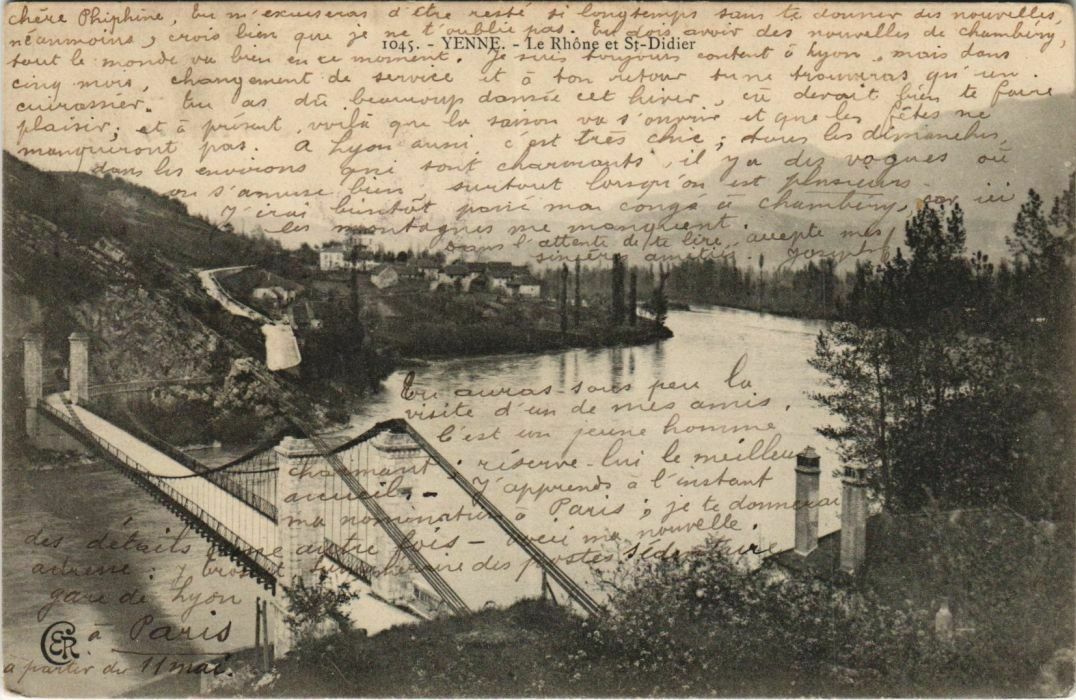 chère Phiphine, tu m'excuseras d'être resté si longtemps sans te donner des nouvelles,
néanmoins, crois bien que je ne t'oublie pas. Tu dois avoir des nouvelles de chambéry,
1045. - YENNE. - Le Rhône et St-Didier
tout le monde va bien en ce moment. Je suis toujours content à Lyon, mais dans
cinq mois, changement de service et à ton retour tu ne trouveras qu'un
cuirassier. tu as dû beaucoup danser cet hiver, ça devait bien te faire
plaisir, et à présent, voilà que la saison va s'ouvrir et que les fêtes ne
manqueront pas. A Lyon aussi, c'est très chic; tous les dimanches
dans les environs qui sont charmants, il y a des vogues où
on s'amuse bien, surtout lorsqu'on est plusieurs.
J'irai bientôt passé ma congé à chambéry, car ici
les montagnes me manquent.
Dans l'attente de te lire, accepte mes
sincères amitiés. Joseph
Tu auras sous peu la
visite d'un de mes amis,
c'est un jeune homme
charmant. réserve-lui le meilleur
accueil. - J'apprends à l'instant
ma nomination à Paris; je te donnerai
des détails une autre fois - voici ma nouvelle
adresse: J. des postes sédentaire
gare de Lyon
à Paris
à partir du 11 mai.
CER